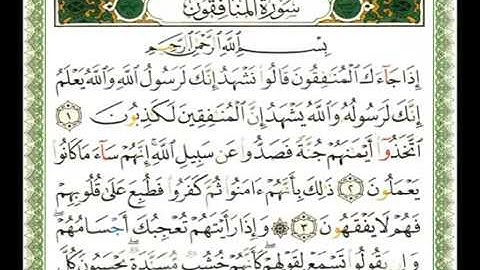 سُورَةُ المُنَافِقُونَ
بِسْمِ اللَّهِ الرَّحْمَٰنِ الرَّحِيمِ
إِذَا جَآءَكَ الْمُنَافِقُونَ قَالُوا نَشْهَدُ إِنَّكَ لَرَسُولُ اللَّهِ وَاللَّهُ يَعْلَمُ
إِنَّكَ لَرَسُولُهُ وَاللَّهُ يَشْهَدُ إِنَّ الْمُنَافِقِينَ لَكَاذِبُونَ ١
اتَّخَذُوا أَيْمَانَهُمْ جُنَّةً فَصَدُّوا عَن سَبِيلِ اللَّهِ إِنَّهُمْ سَآءَ مَا كَانُوا
يَعْمَلُونَ ٢ ذَٰلِكَ بِأَنَّهُمْ ءَامَنُوا ثُمَّ كَفَرُوا فَطُبِعَ عَلَىٰ قُلُوبِهِمْ
فَهُمْ لَا يَفْقَهُونَ ٣ ۞ وَإِذَا رَأَيْتَهُمْ تُعْجِبُكَ أَجْسَامُهُمْ
وَإِن يَقُولُوا تَسْمَعْ لِقَوْلِهِمْ كَأَنَّهُمْ خُشُبٌ مُّسَنَّدَةٌ يَحْسَبُونَ كُلَّ